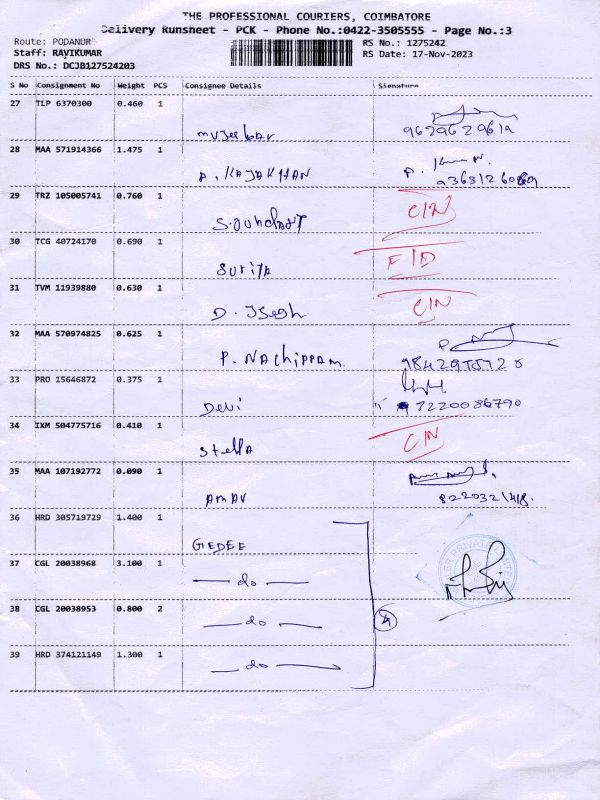 THE PROFESSIONAL COURIERS, COIMBATORE
Delivery Runsheet - PCK - Phone No.:0422-3505555 - Page No.:3
Route: PODANUR RS No.: 1275242
Staff: RAVIKUMAR RS Date: 17-Nov-2023
DRS No.: DCJB127524203
S No Consignment No Weight PCS Consignee Details Signature
27 TLP 6370300 0.460 1
28 MAA 571914366 1.475 1
A. KAJAKHAN
29 TRZ 105005741 0.760 1 C/N
30 TCG 40724170 0.690 1 F/D
Suriya
31 TVM 11939880 0.630 1 C/N
32 MAA 570974825 0.625 1
P. NAChippam
33 PRO 15646872 0.375 1
Devi 7220086790
34 IXM 504775716 0.410 1 C/N
Stella
35 MAA 107192772 0.090 1
36 HRD 305719729 1.400 1
GEDEE
37 CGL 20038968 3.100 1
do
38 CGL 20038953 0.800 2
do 4
39 HRD 374121149 1.300 1
do